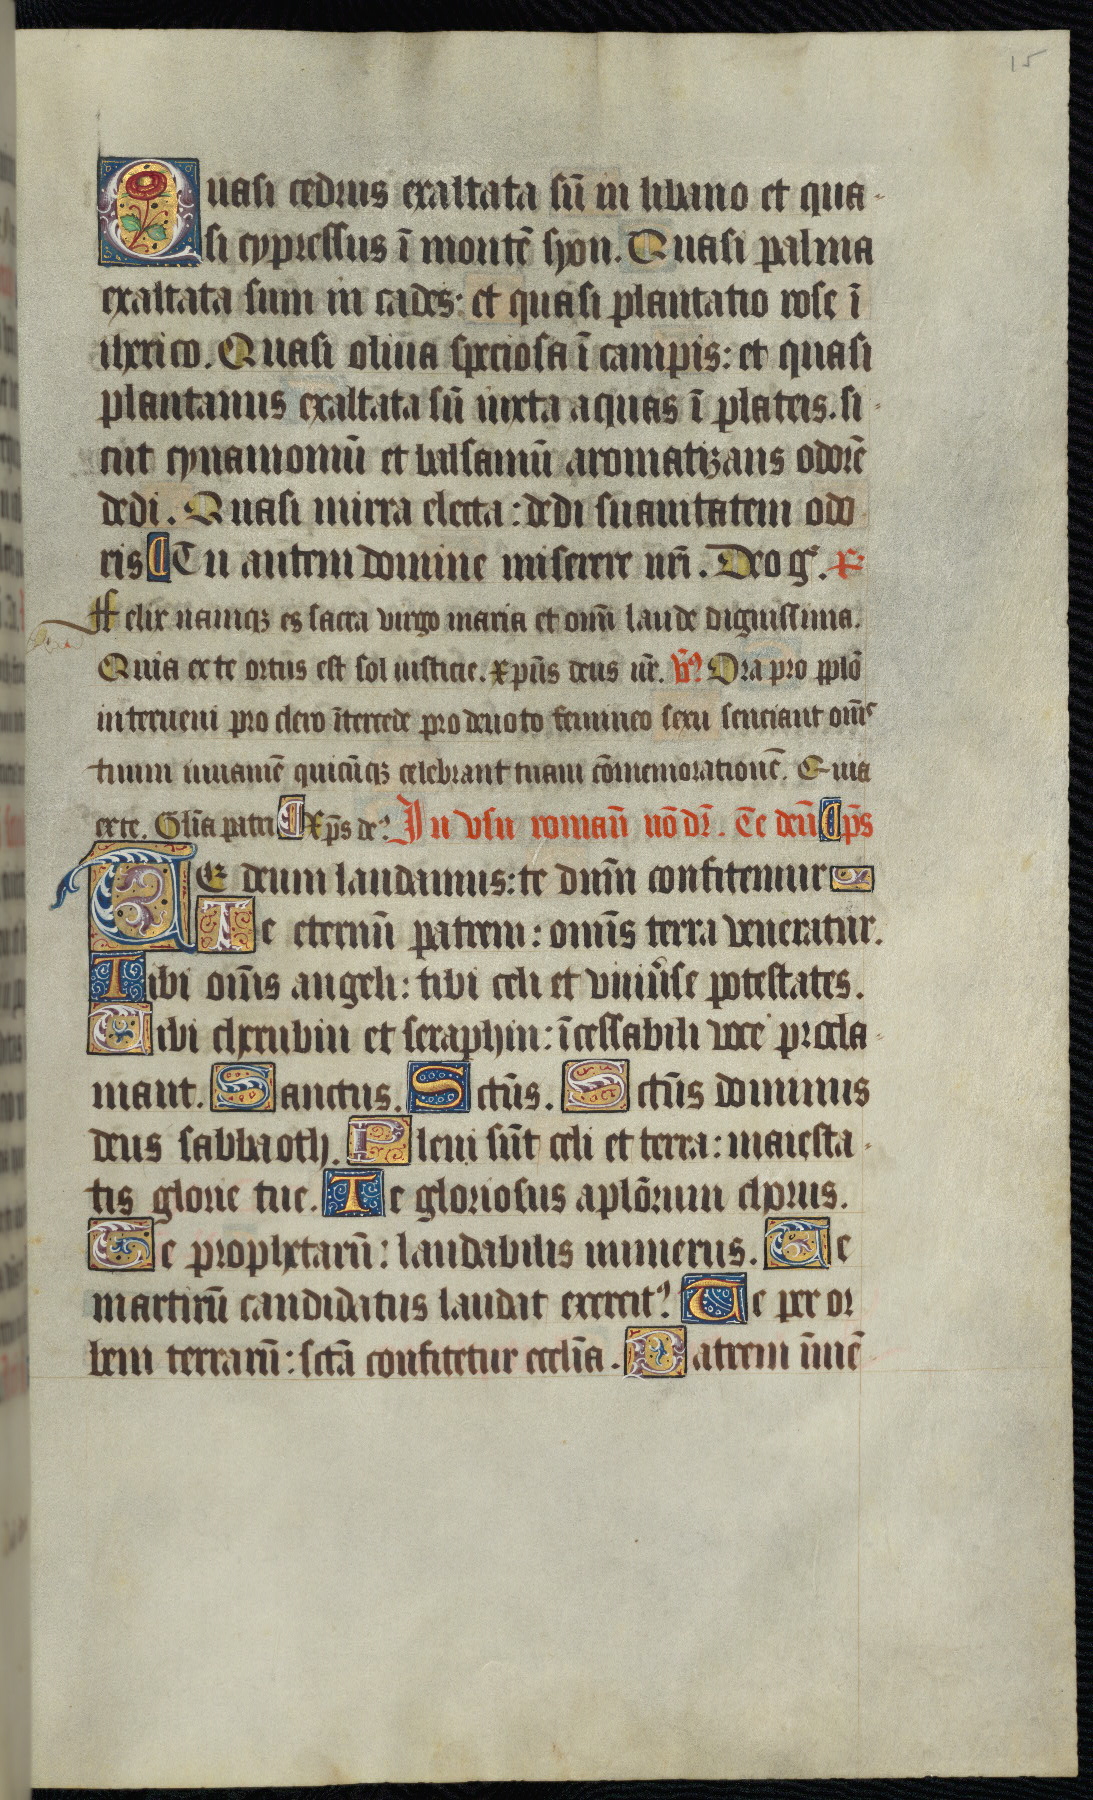 15
Quasi cedrus exaltata sū in libano et qua-
si cypressus ī montē syon. Quasi palma
exaltata sum in cades: et quasi plantatio rose ī
iherico. Quasi oliua speciosa ī campis: et quasi
plantanus exaltata sū iuxta aquas ī plateis. si-
cut cynamomū et balsamū aromatizans odorē
dedi. Quasi mirra electa: dedi suauitatem odo
ris Tu autem domine miserere nr̄i. Deo gr̄. R̄
Felix namqꝫ es sacra virgo maria et omī laude dignissima.
Quia ex te ortus est sol iusticie. xp̄us deus nr̄. V̄ꝰ Ora pro pp̄lō
interueni pro clero ītercede pro deuoto femineo sexu senciant om̄s
tuum iuuamē quicūqꝫ celebrant tuam cōmemorationē. Quia
ex te. Gl̄ia patri Xp̄s deꝰ In vsu romanū nō dr̄. Te deū p̄s
TE deum laudamus: te dnm̄ confitemur
Te eternū patrem: omīs terra veneratur.
Tibi om̄s angeli: tibi celi et vniūse potestates.
Tibi cherubin et seraphin: īcessabili voce procla-
mant. Sanctus. Sctūs. Sctūs dominus
deus sabbaoth. Pleni sūt celi et terra: maiesta-
tis glorie tue. Te gloriosus aplōrum chorus.
Te prophetarū: laudabilis numerus. Te
martirū candidatus laudat exercitꝰ Te per or
bem terrarū: sctā confitetur eccl̄ia. Patrem īmē